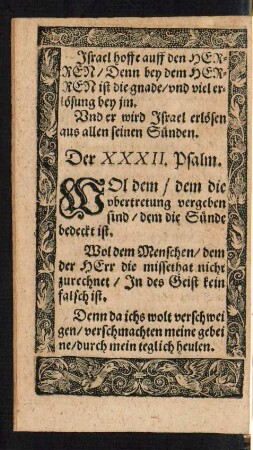 Israel hoffe auff den HER-
REN / Denn bey dem HER-
REN ist die gnade / vnd viel er-
lösung bey jm.
Vnd er wird Israel erlösen
aus allen seinen Sünden.
Der XXXII. Psalm.
WOl dem / dem die
vbertretung vergeben
sind / dem die Sünde
bedeckt ist.
Wol dem Menschen / dem
der HErr die missethat nicht
zurechnet / In des Geist kein
falsch ist.
Denn da ichs wolt verschwei
gen / verschmachten meine gebei
ne / durch mein teglich heulen.